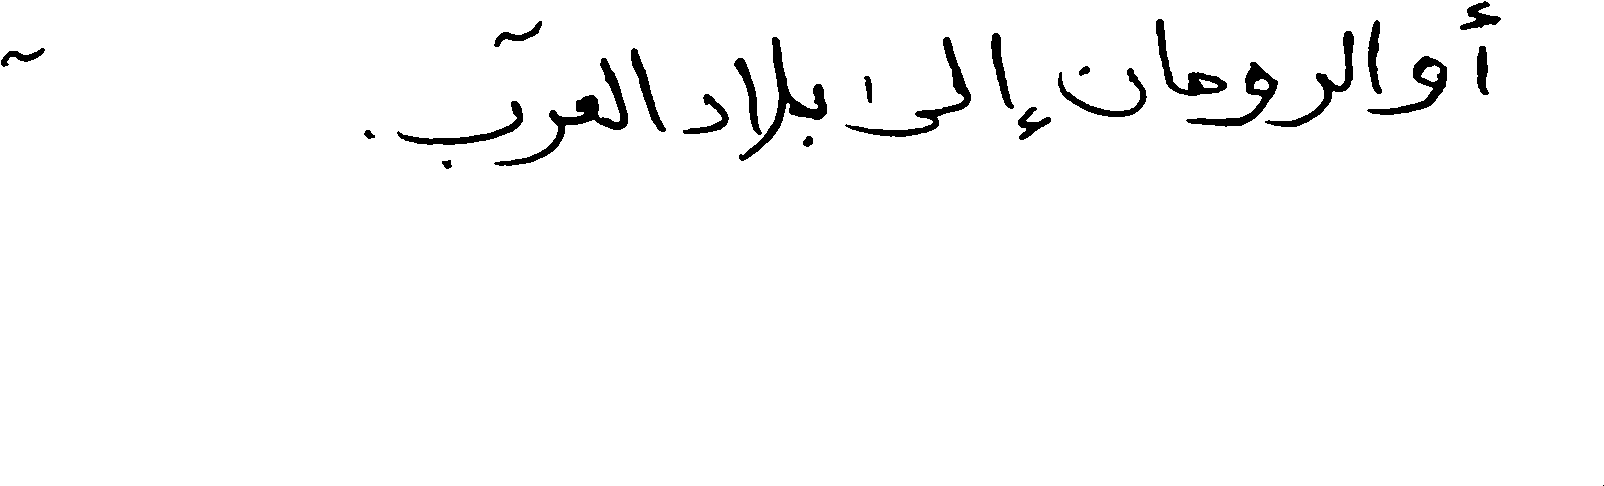 أو الرومان إلى بلاد العرب.